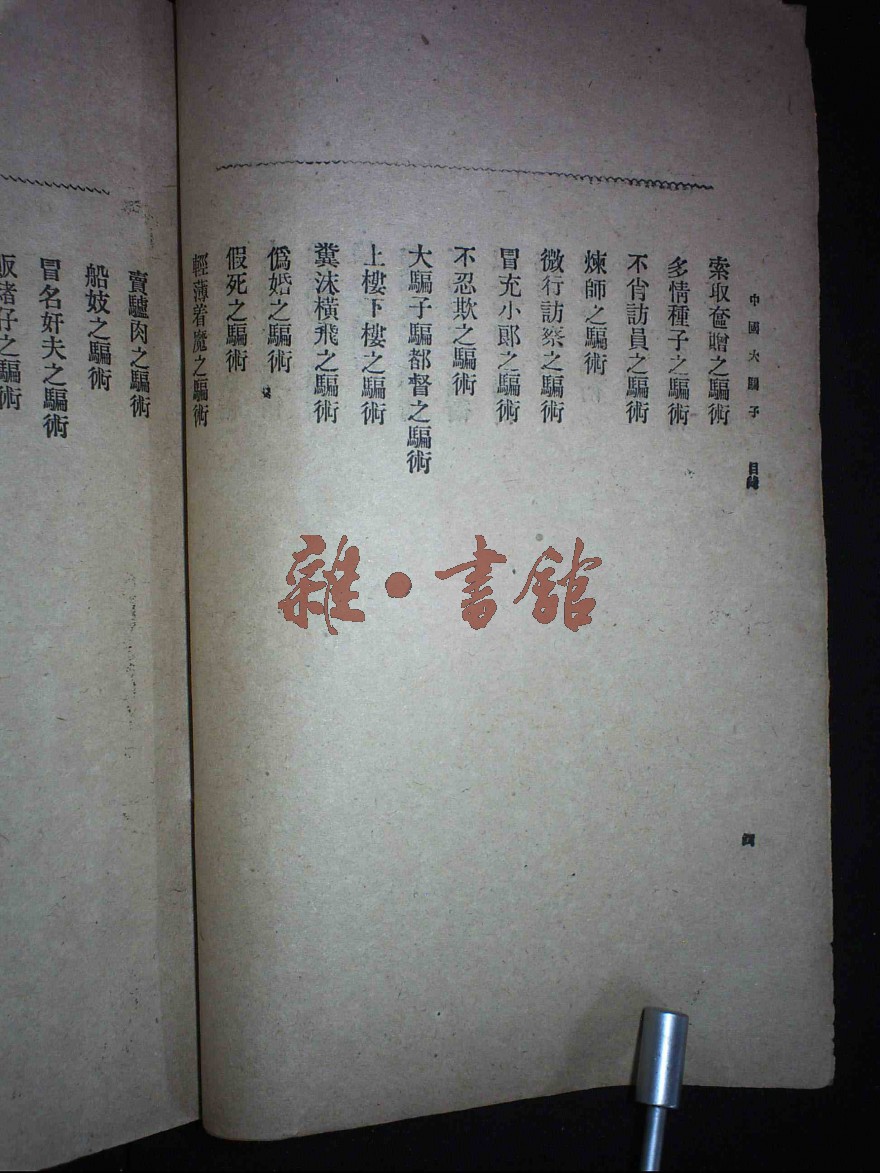 中國大騙子 目錄
四
索取奩贈之騙術
多情種子之騙術
不肯訪員之騙術
煉師之騙術
微行訪察之騙術
冒充小郎之騙術
不忍欺之騙術
大騙子騙都督之騙術
上樓下樓之騙術
糞沫橫飛之騙術
僞婚之騙術
假死之騙術
輕薄着魔之騙術
賣驢肉之騙術
船妓之騙術
冒名奸夫之騙術
販猪仔之騙術
雜·書館